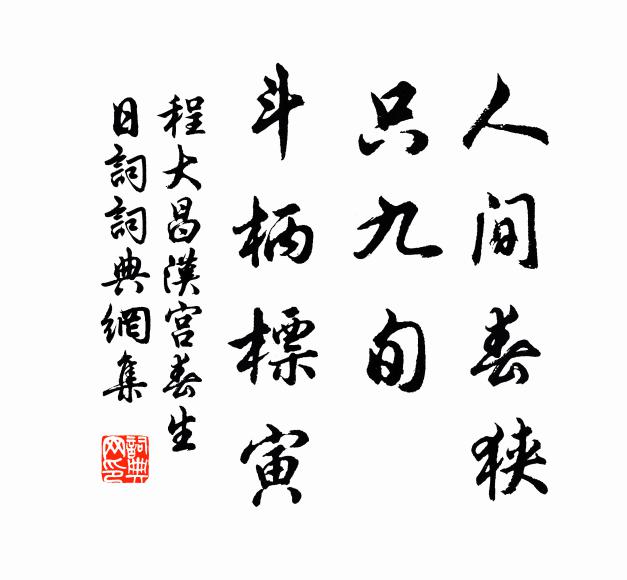 人间春狹
只九旬
斗柄標寅
程大昌漢宫春生
日詞詞典網集
詞典
网印